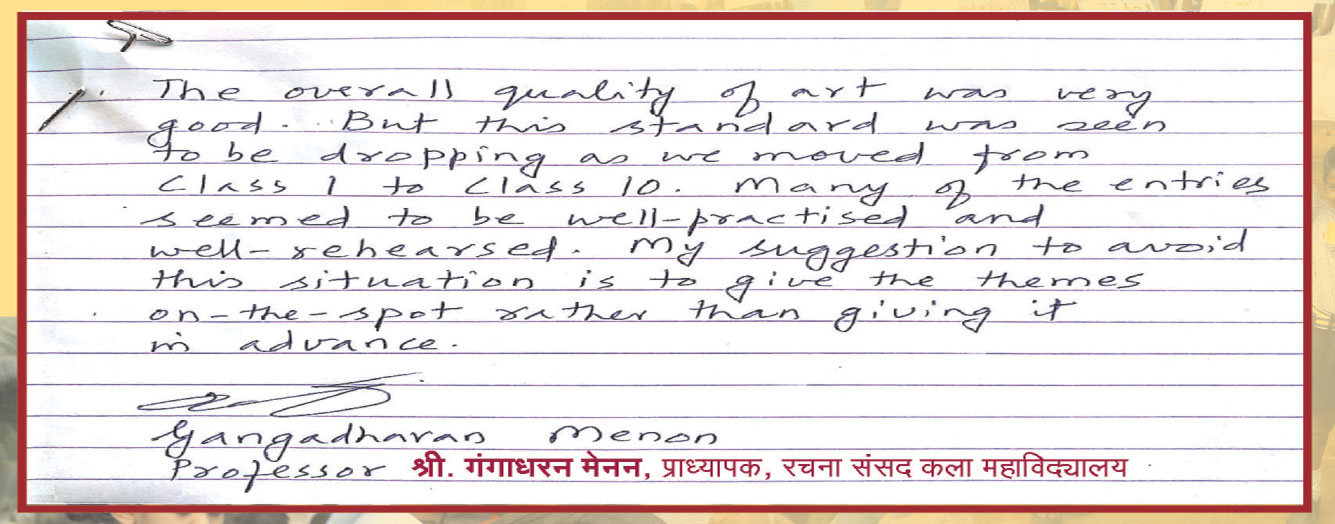 The overall quality of art was very
good. But this standard was seen
to be dropping as we moved from
Class 1 to Class 10. Many of the entries
seemed to be well-practised and
well-rehearsed. My suggestion to avoid
this situation is to give the themes
on-the-spot rather than giving it
in advance.
Gangadharan Menon
Professor श्री. गंगाधरन मेनन, प्राध्यापक, रचना संसद कला महाविद्यालय